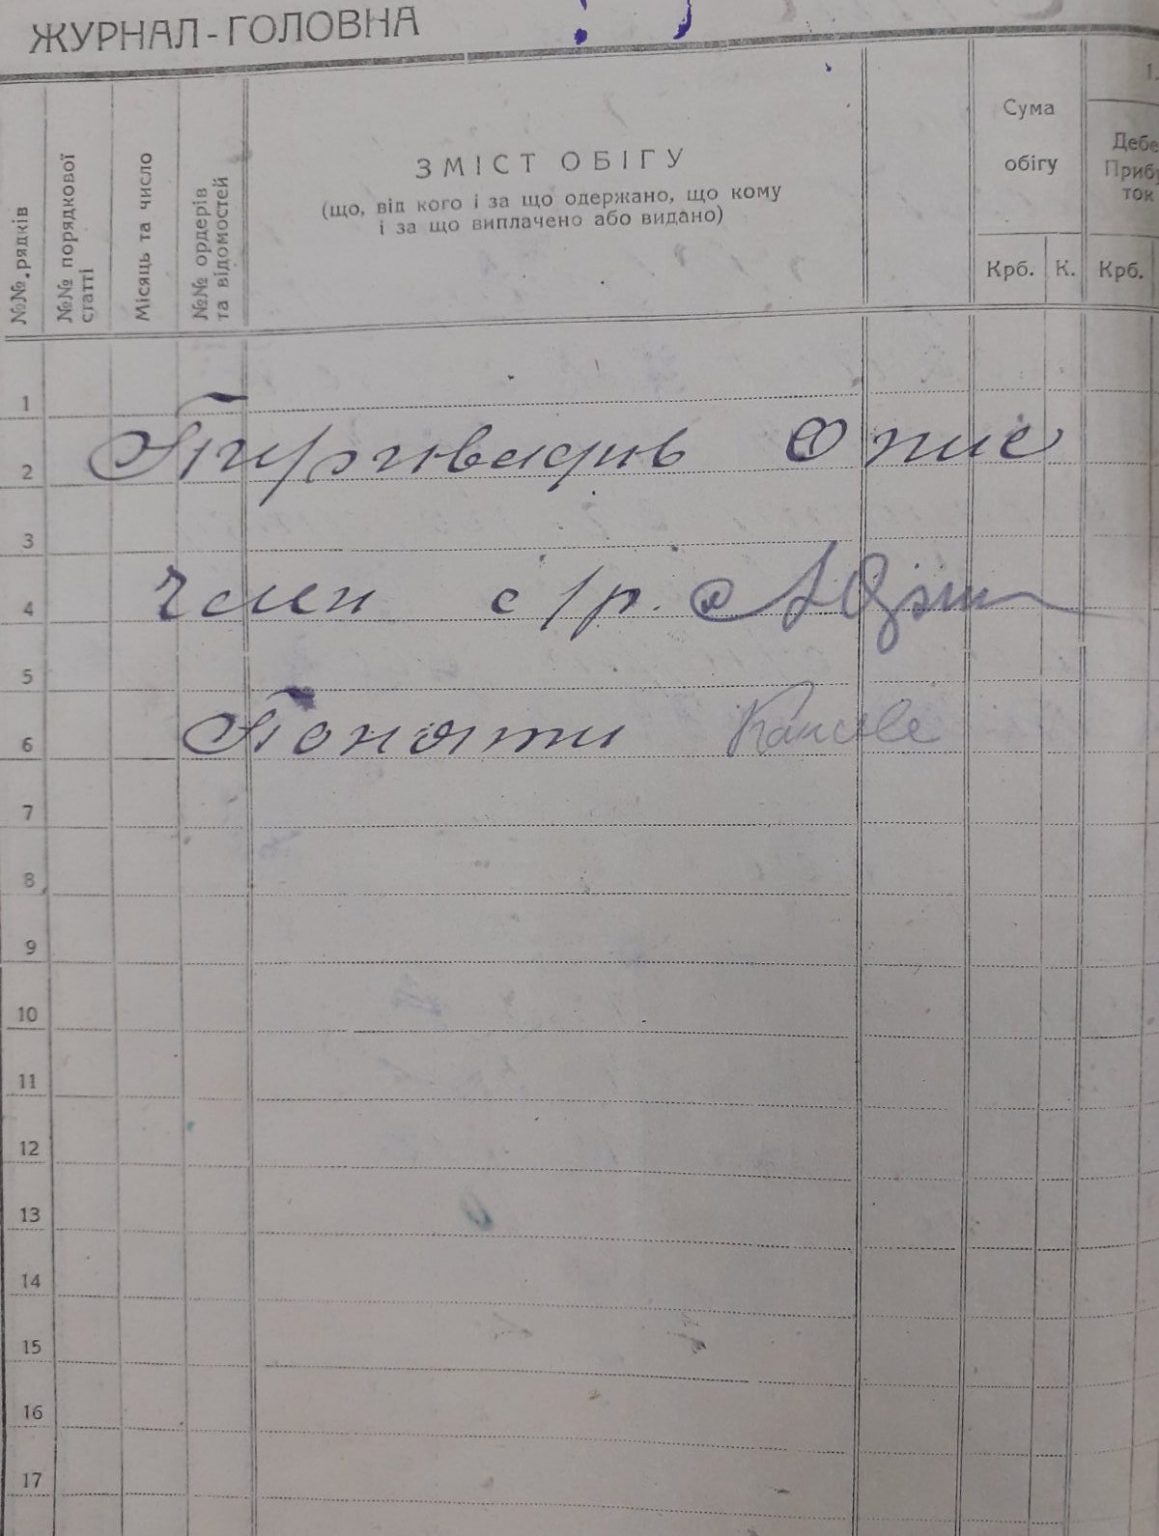 ЖУРНАЛ-ГОЛОВНА
№№ рядків
№№ порядкової статті
Місяць та число
№№ ордерів та відомостей
ЗМІСТ ОБІГУ
(що, від кого і за що одержано, що кому
і за що виплачено або видано)
Сума
обігу
Крб. К.
1.
Дебе
Приб
ток
Крб.
1
2 Опис
3
4 Член с/р.
5
6 Поняти
7
8
9
10
11
12
13
14
15
16
17